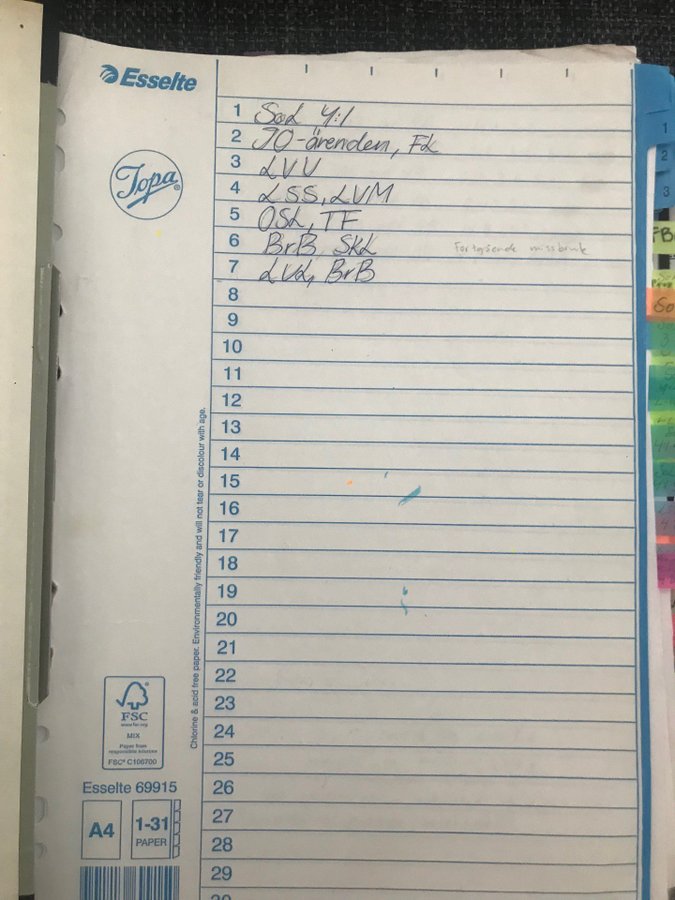 Esselte
Topa®
1 SoL 4:1
2 JO-ärenden, FL
3 LVU
4 LSS, LVM
5 OSL, TF
6 BrB SkL
7 LVL, BrB
8
9
10
11
12
13
14
15
16
17
18
19
20
21
22
23
24
25
26
27
28
29
Chlorine & acid free paper. Environmentally friendly and will not tear or discolour with age.
FSC
www.fsc.org
MIX
Paper from
responsible sources
FSC® C106700
Esselte 69915
A4
1-31
PAPER
1
2
3
FB
So